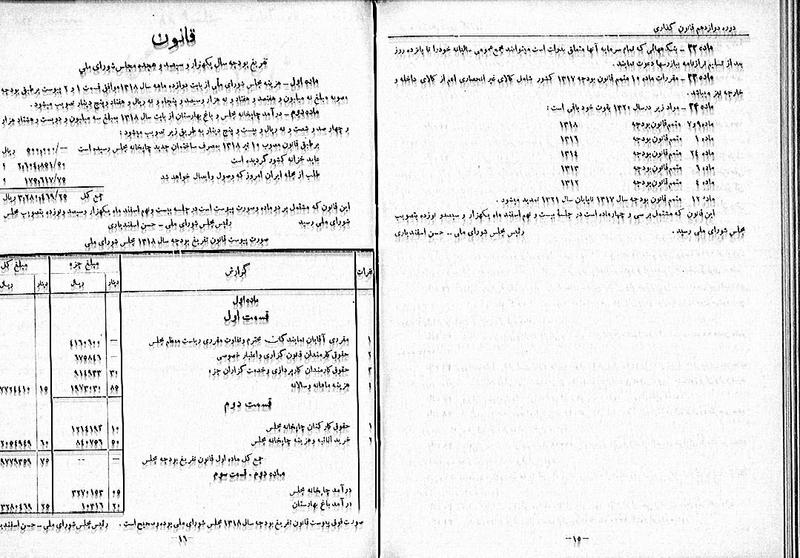 دوره دوازدهم قانون گذاری
ماده ۳۲ - بنگاههائی که تمام سرمایه آنها متعلق بدولت است میتوانند مجمع عمومی سالیانه خود را تا پانزده روز
بعد از تسلیم ترازنامه ببازرسها دعوت نمایند.
ماده ۳۳ - مقررات ماده ۱۰ متمم قانون بودجه ۱۳۱۷ کشور شامل کالای غیر انحصاری اعم از کالای داخله و
خارجه نیز میباشد.
ماده ۳۴ - مواد زیر در سال ۱۳۲۰ بقوت خود باقی است:
ماده ۹ و ۷ متمم قانون بودجه ۱۳۱۸
ماده ۱ متمم قانون بودجه ۱۳۱۶
ماده ۲۴ متمم قانون بودجه ۱۳۱۴
ماده ۹ متمم قانون بودجه ۱۳۱۳
ماده ۴ متمم قانون بودجه ۱۳۱۲
ماده ۱۲ متمم قانون بودجه سال ۱۳۱۷ تا پایان سال ۱۳۲۱ تمدید میشود.
این قانون که مشتمل بر سی و چهار ماده است در جلسه بیست و نهم اسفند ماه یکهزار و سیصد و نوزده بتصویب
مجلس شورای ملی رسید. رئیس مجلس شورای ملی - حسن اسفندیاری
-۱۵-
قانون
تفریغ بودجه سال یکهزار و سیصد و هجده مجلس شورای ملی
ماده اول - هزینه مجلس شورای ملی از بابت دوازده ماهه سال ۱۳۱۸ موافق قسمت ۱ و ۲ پیوست برطبق بودجه
مصوبه مبلغ نه میلیون و هفتصد و هفتاد و نه هزار و سیصد و پنجاه و نه ریال و هفتاد و پنج دینار تصویب میشود.
ماده دوم - درآمد چاپخانه مجلس و باغ بهارستان از بابت سال ۱۳۱۸ مبلغ سه میلیون و دویست و هشتاد هزار
و چهار صد و شصت و نه ریال و بیست و پنج دینار به طریق زیر تصویب میشود:
برطبق قانون مصوب ۱۰ تیر ۱۳۱۸ بمصرف ساختمان جدید چاپخانه مجلس رسیده است ۵۰۰,۰۰۰/- ریال
عاید خزانه کشور گردیده است
طلب از بنگاه ایران امروز که وصول و ایصال خواهد شد
جمع کل ۳,۲۸۰,۴۶۹/۲۵ ریال
این قانون که مشتمل بر دو ماده و صورت پیوست است در جلسه بیست و نهم اسفند ماه یکهزار و سیصد و نوزده بتصویب مجلس
شورای ملی رسید رئیس مجلس شورای ملی - حسن اسفندیاری
صورت پیوست قانون تفریغ بودجه سال ۱۳۱۸ مجلس شورای ملی
فقرات گزارش مبلغ جزء مبلغ کل
دینار ریال دینار ریال
ماده اول
قسمت اول
۱ مقرری آقایان نمایندگان محترم و تفاوت مقرری ریاست معظم مجلس — ۴۱۶۰۶۰۰
۲ حقوق کارمندان قانون گزاری و اعتبار خصوصی — ۶۷۵۸۴۶
۳ حقوق کارمندان کارپردازی و خدمت گزاران جزء ۳۰ ۹۱۴۹۳۳
۴ هزینه ماهانه و سالانه ۸۵ ۱۹۷۳۰۳۰ ۱۵
قسمت دوم
۱ حقوق کارکنان چاپخانه مجلس ۱۰ ۱۲۱۴۱۹۳
۲ خرید اثاثیه و هزینه چاپخانه مجلس ۵۰ ۸۴۰۷۵۶ ۶۰ ۲۰۵۴۹۴۹
جمع کل ماده اول قانون تفریغ بودجه مجلس — — ۷۵ ۹۷۷۹۳۵۹
ماده دوم - قسمت سوم
درآمد چاپخانه مجلس ۰۵ ۳۲۷۰۱۵۳
درآمد باغ بهارستان ۲۰ ۱۰۳۱۶ ۲۵ ۳۲۸۰۴۶۹
صورت فوق پیوست قانون تفریغ بودجه سال ۱۳۱۸ مجلس شورای ملی بوده و صحیح است. رئیس مجلس شورای ملی - حسن اسفندیاری
-۱۶-